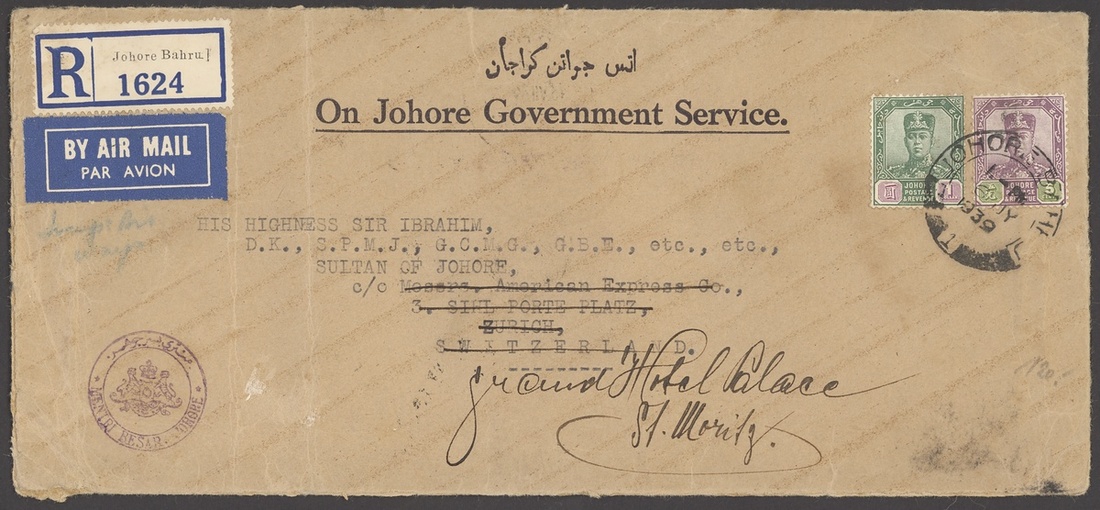 Johore Bahru.
R
1624
BY AIR MAIL
PAR AVION
انس جواتن كراجأن
On Johore Government Service.
JOHORE
POSTAGE
& REVENUE
JOHORE
POSTAGE
& REVENUE
JOHORE
JY
1939
HIS HIGHNESS SIR IBRAHIM,
D.K., S.P.M.J., G.C.M.G., G.B.E., etc., etc.,
SULTAN OF JOHORE,
c/o Messrs. American Express Co.,
3. SIHL PORTE PLATZ,
ZURICH,
SWATZERLAND.
Grand Hotel Palace
St. Moritz.
MENTRI BESAR JOHORE
120.-